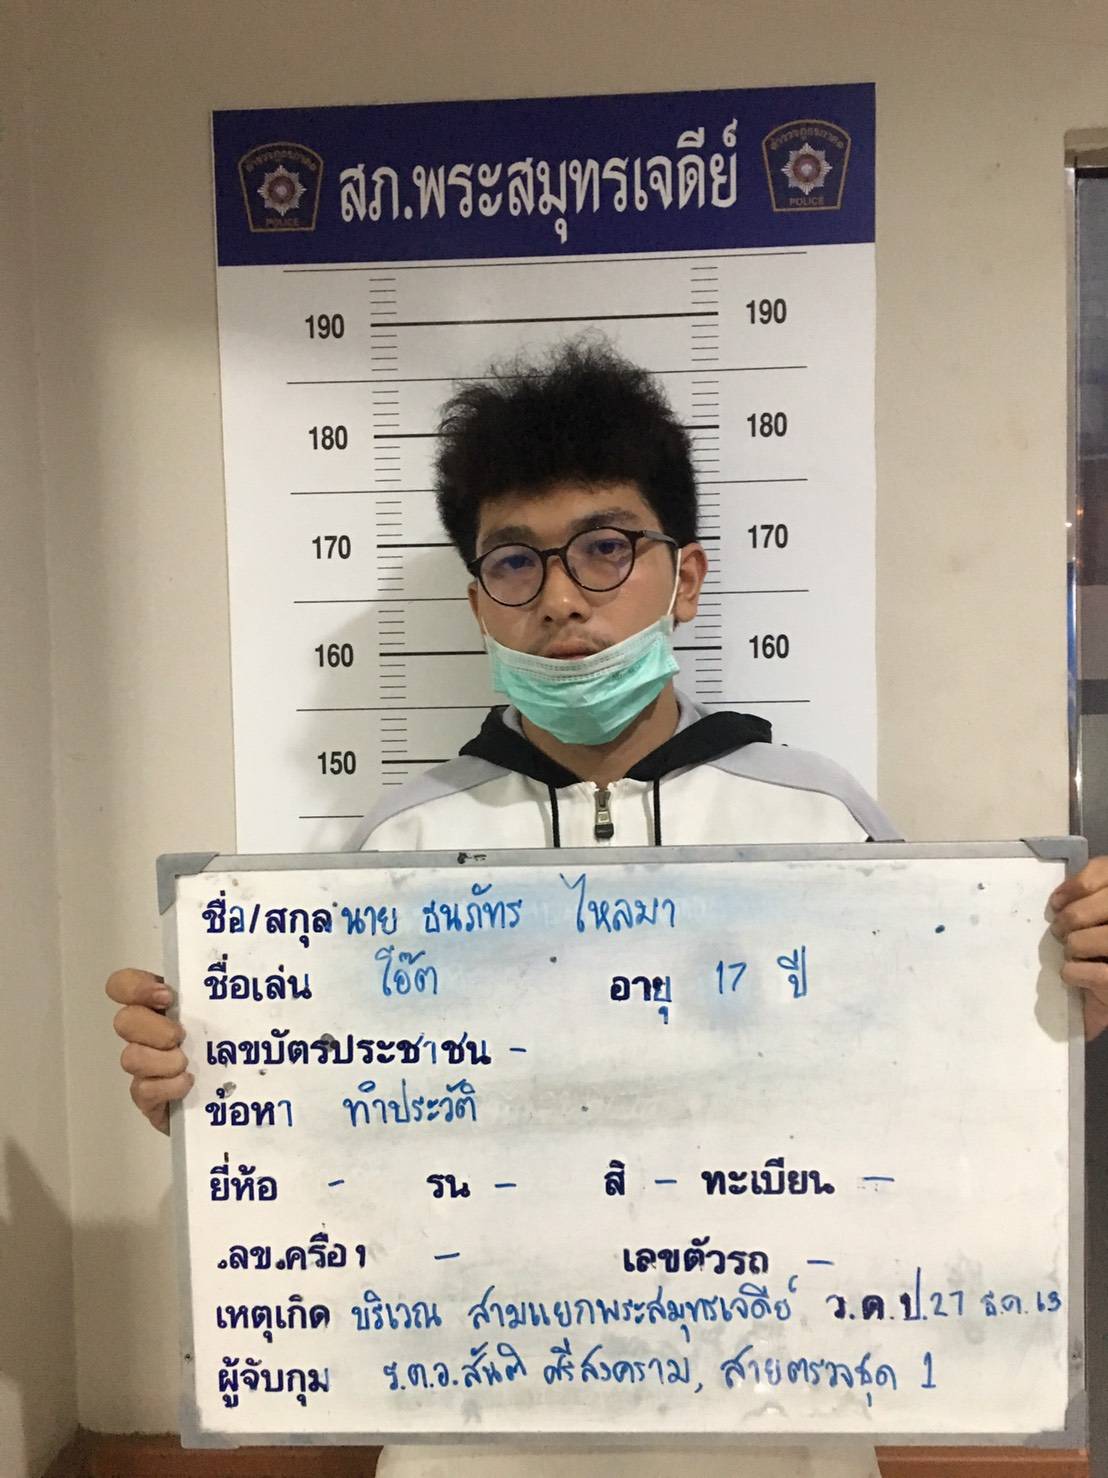 สภ.พระสมุทรเจดีย์
ตำรวจภูธรภาค1 POLICE
ตำรวจภูธรภาค1 POLICE
190 190
180 180
170 170
160 160
150
ชื่อ/สกุล นาย ธนภัทร ไหลมา
ชื่อเล่น โอ๊ต อายุ 17 ปี
เลขบัตรประชาชน -
ข้อหา ทำประวัติ
ยี่ห้อ - รน - สี - ทะเบียน -
ลข.ครือง - เลขตัวรถ -
เหตุเกิด บริเวณ สามแยกพระสมุทรเจดีย์ ว.ด.ป.27 ธ.ค.63
ผู้จับกุม ร.ต.อ.สันติ ศรีสงคราม, สายตรวจชุด 1